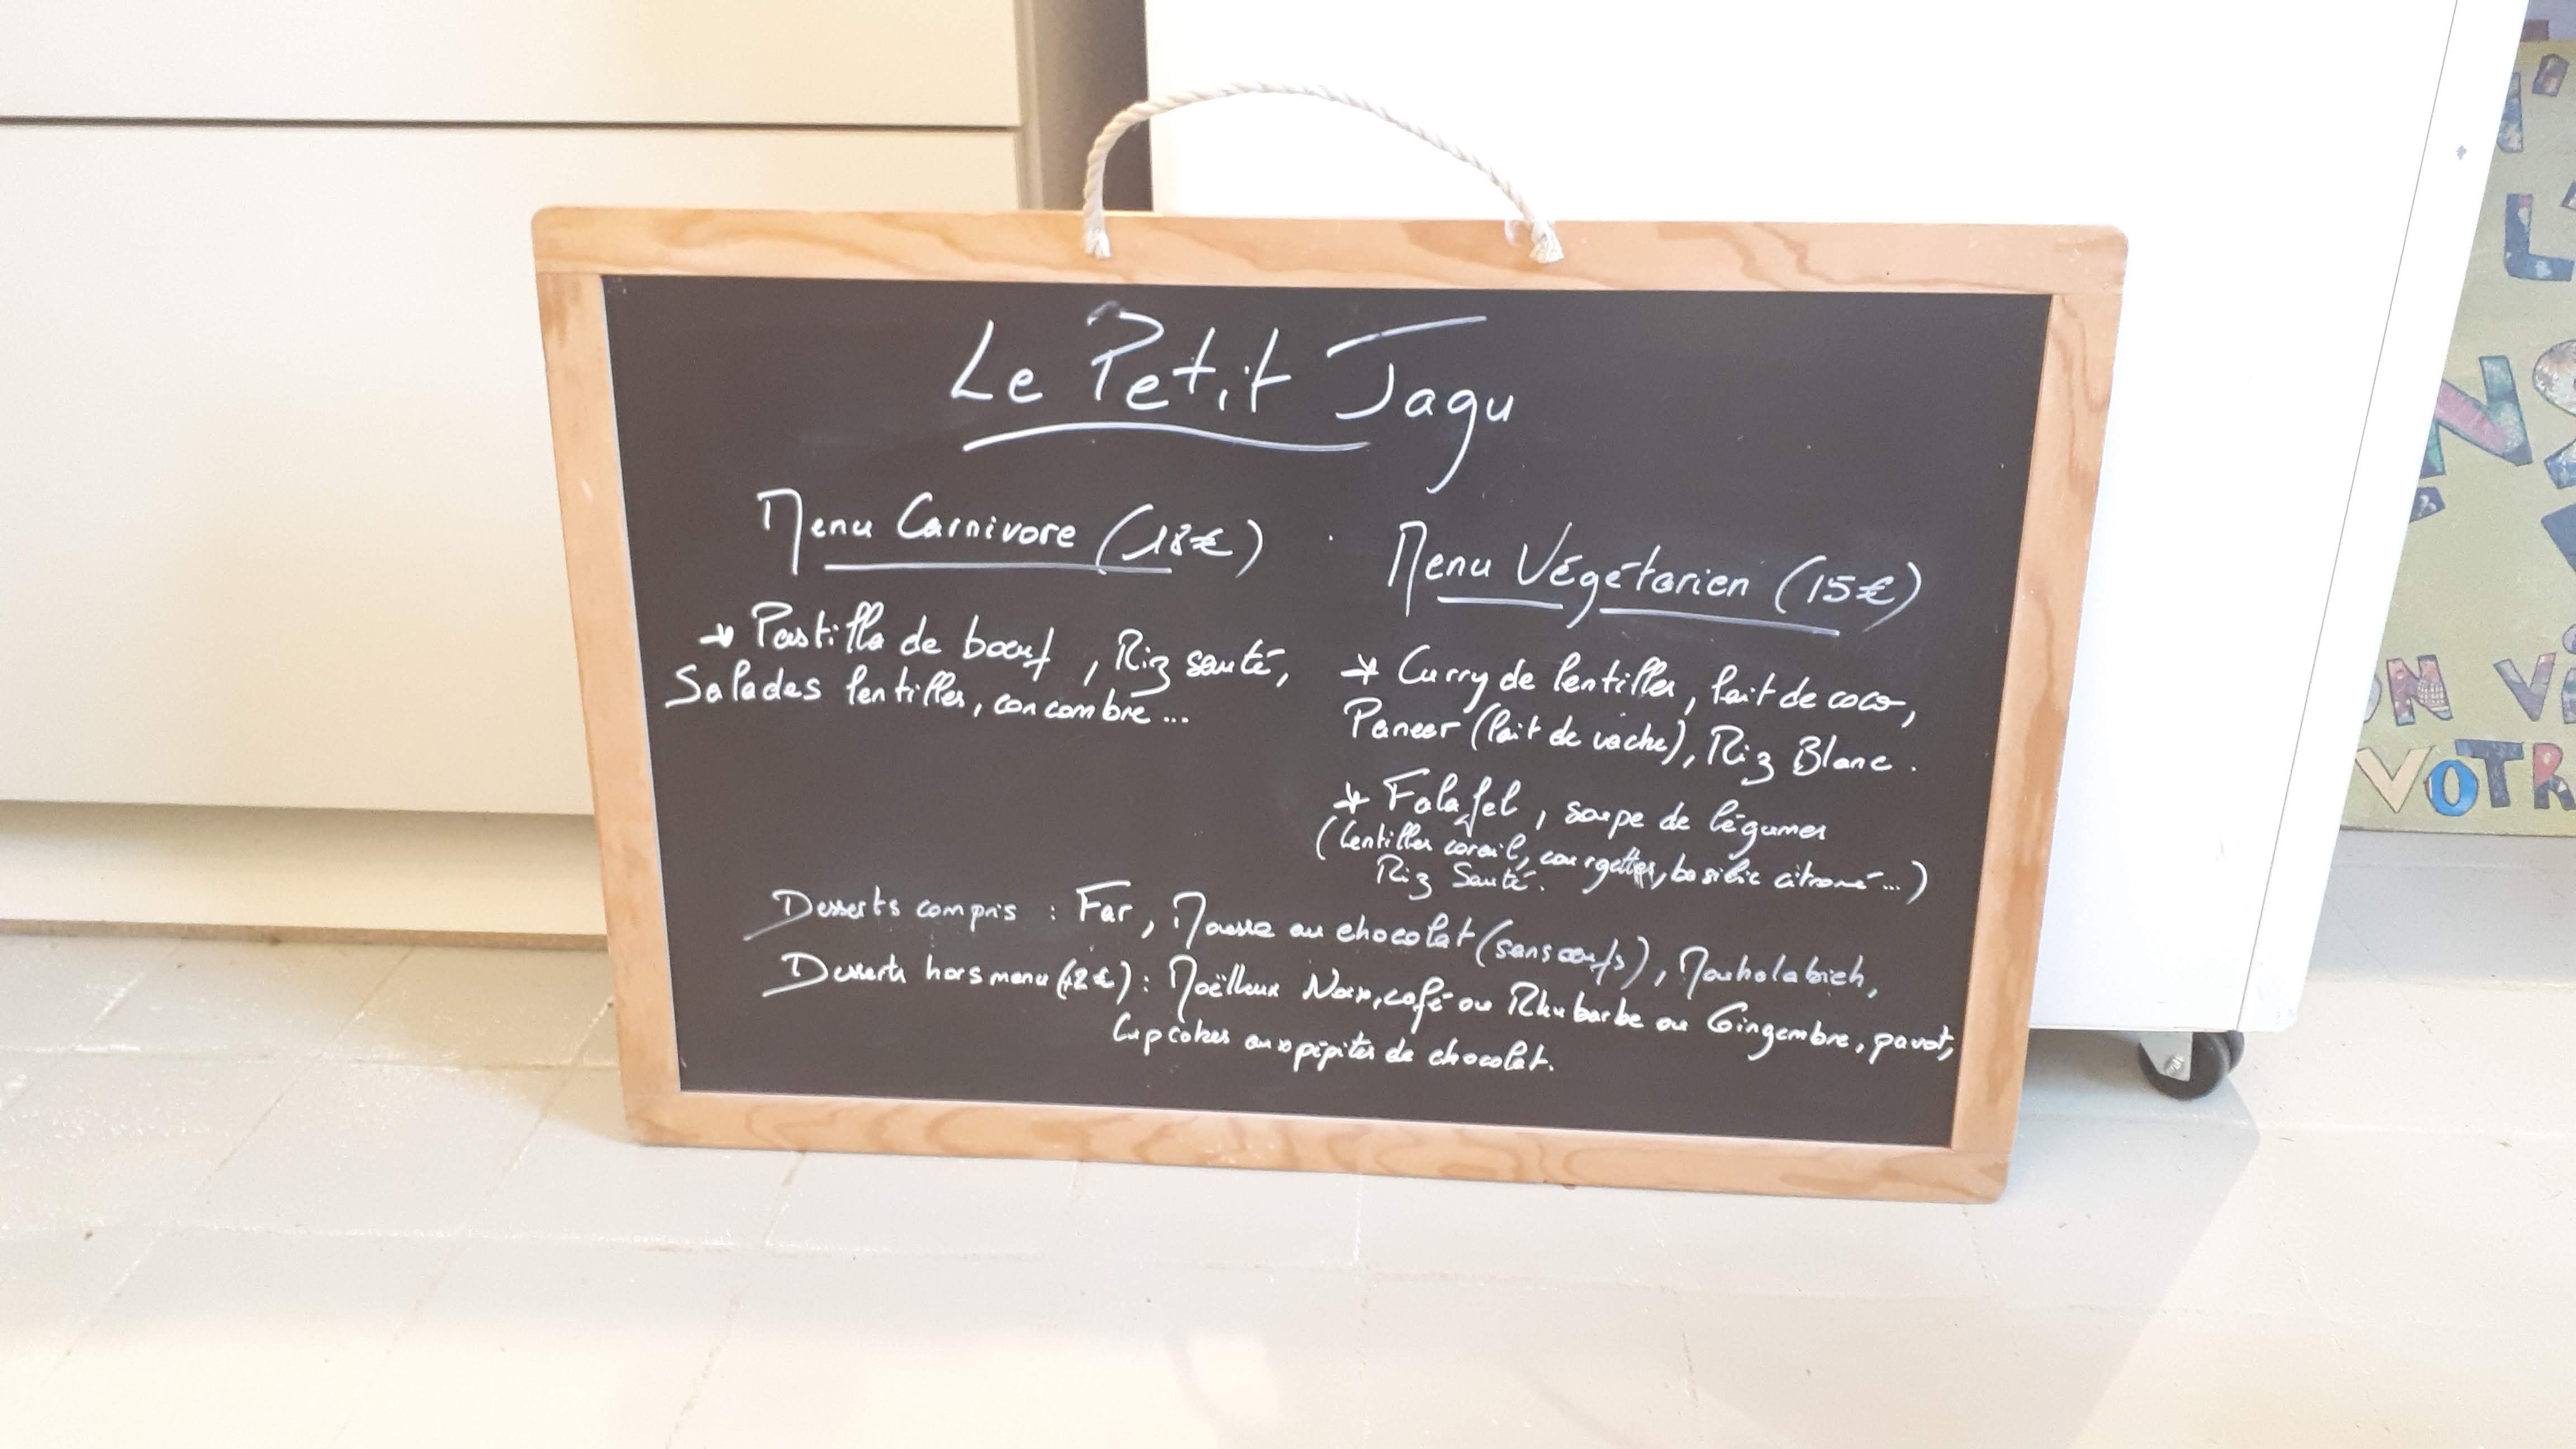 Le Petit Jagu
Menu Carnivore (18€)
→ Pastilla de boeuf, Riz sauté,
Salades lentilles, concombre...
Menu Végétarien (15€)
→ Curry de lentilles, lait de coco,
Paneer (lait de vache), Riz Blanc.
→ Falafel, soupe de légumes
(lentilles corail, courgettes, basilic citronné...)
Riz Sauté.
Desserts compris : Far, Mousse au chocolat (sans oeufs), Mouhalabieh,
Desserts hors menu (+2€) : Moëlleux Noix, café ou Rhubarbe ou Gingembre, pavot,
Cupcakes aux pépites de chocolat.
L'
NS
ON VE
VOTR